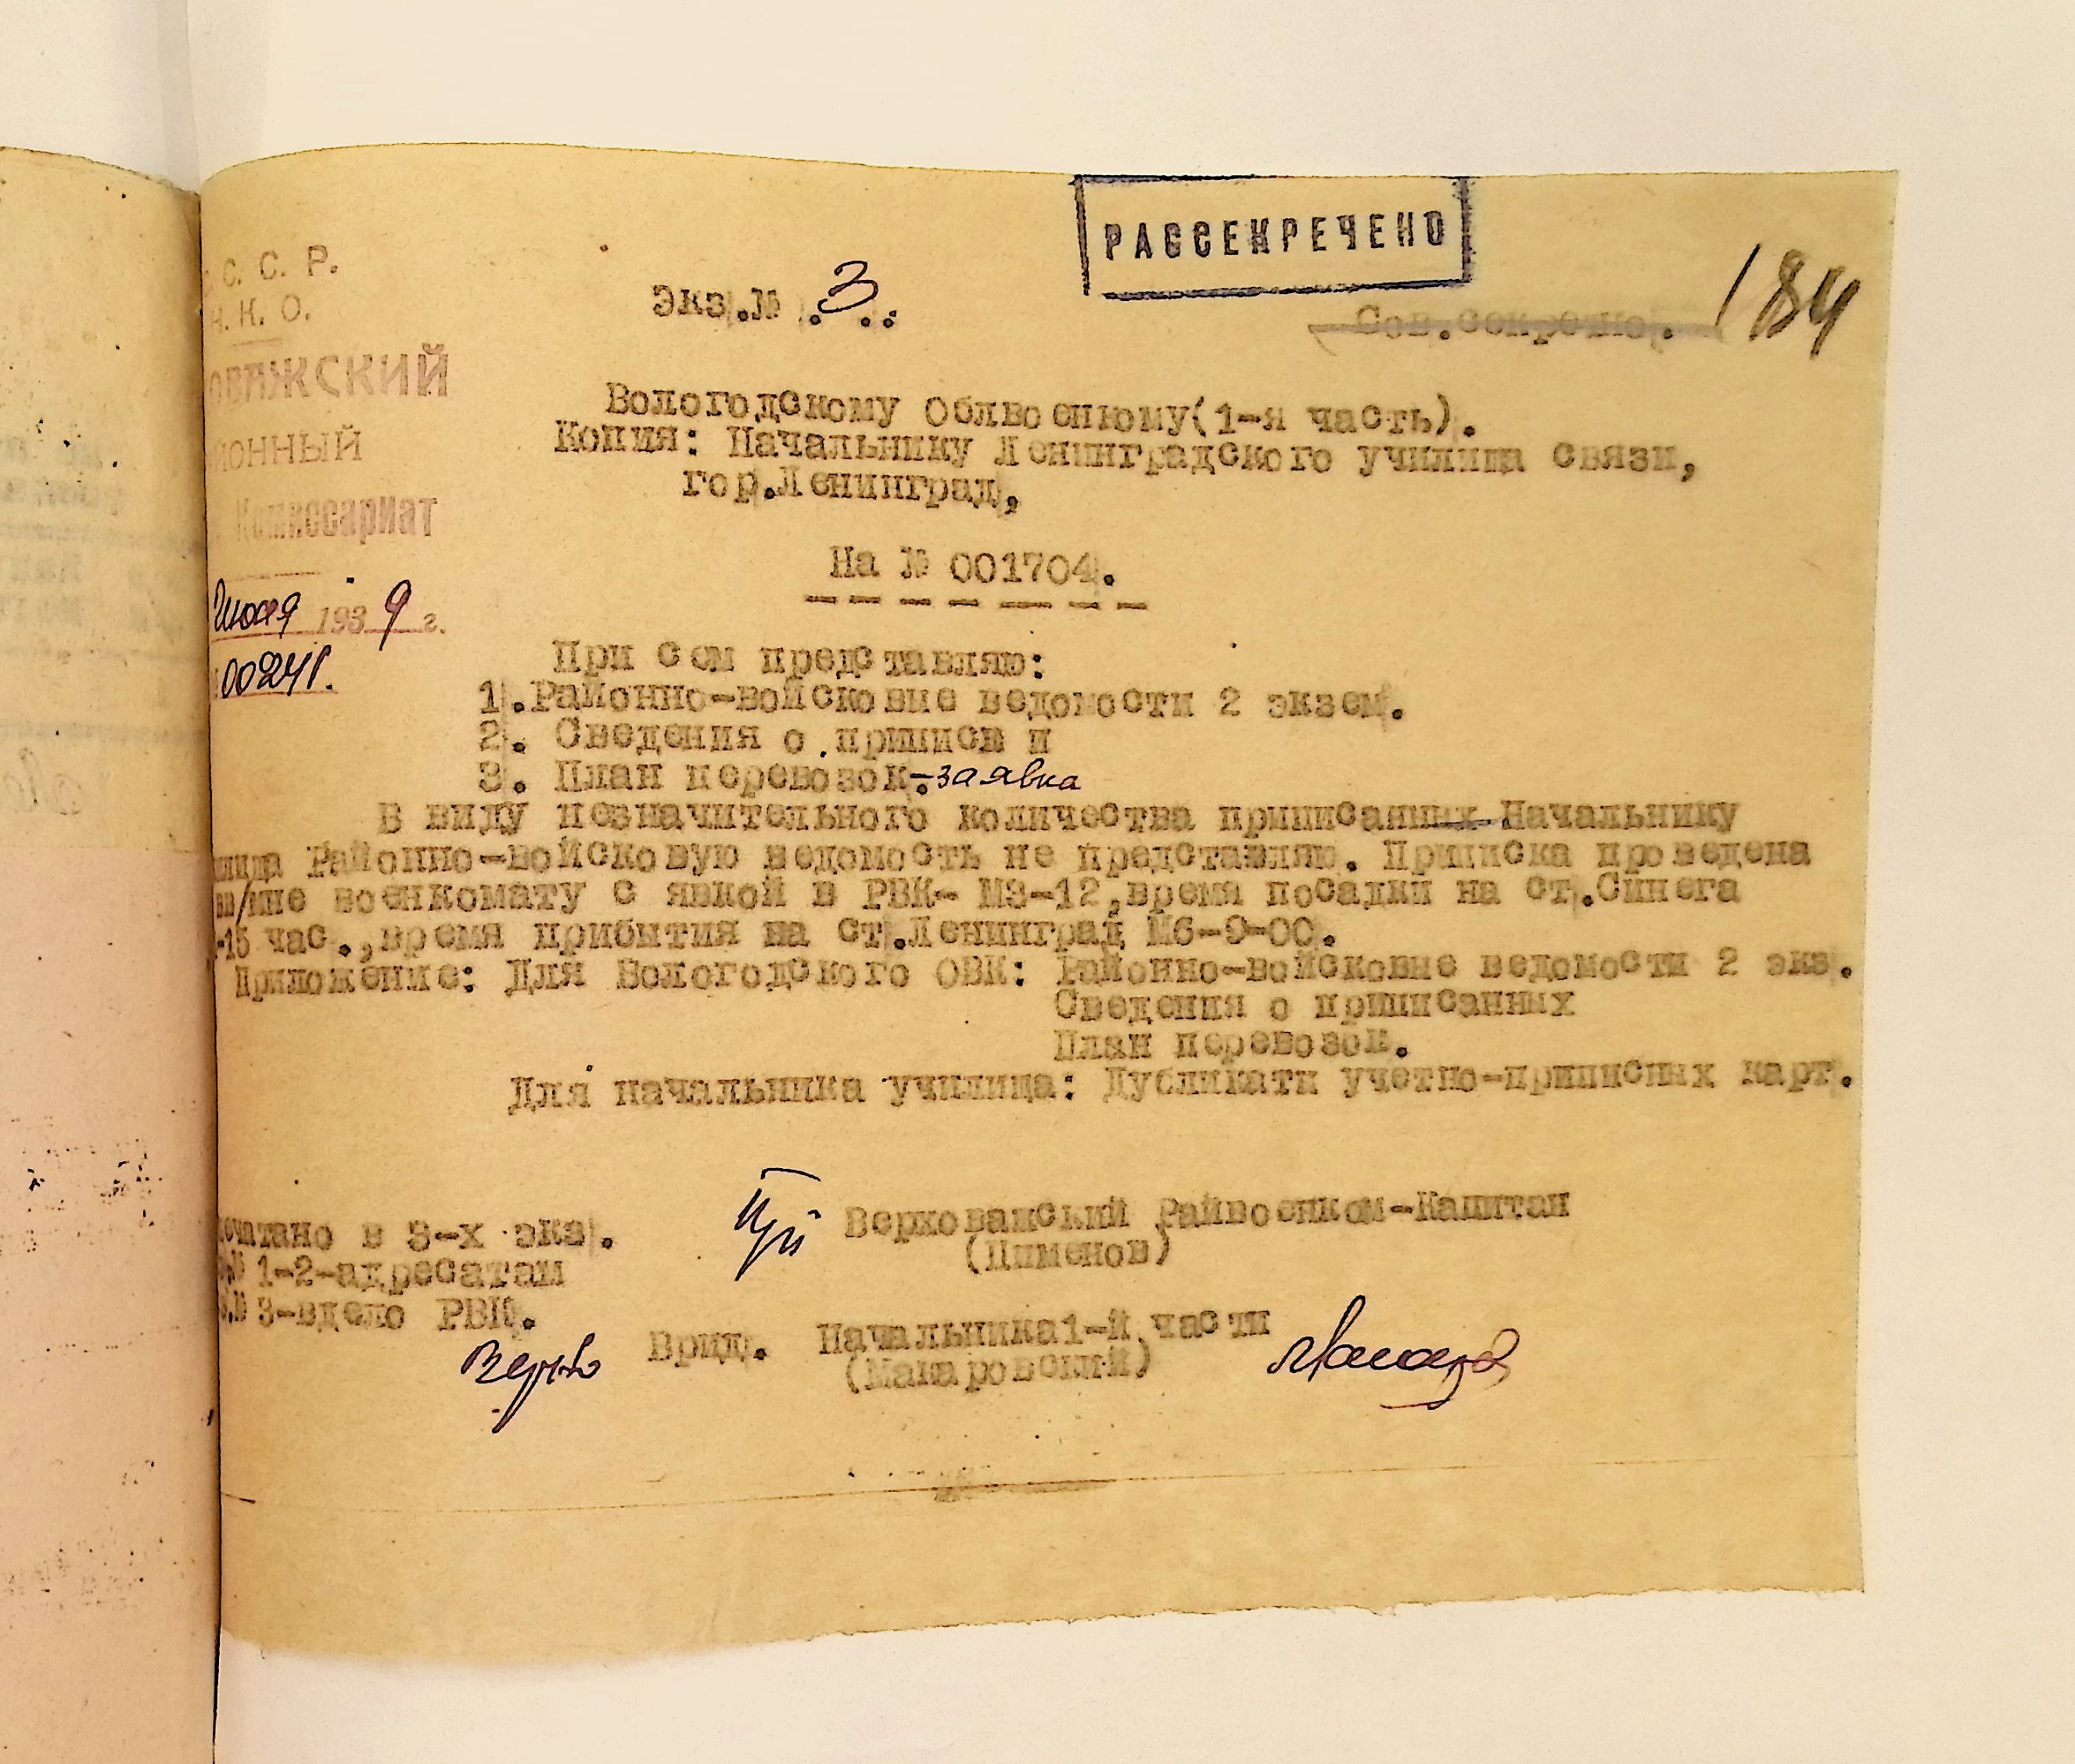 РАССЕКРЕЧЕНО
С. С. Р.
Н. К. О.
ОВАЖСКИЙ
ИОННЫЙ
Комиссариат
июля 1939 г.
00241.
184
Экз.№ .3..:
Сов.секретно.
Вологодскому Облвоенкому(1-я часть).
Копия: Начальнику Ленинградского училища связи,
гор.Ленинград,
На № 001704.
При сем представляю:
1.Районно-войсковые ведомости 2 экзем.
2. Сведения о приписв и
3. План перевозок-заявка
В виду незначительного количества приписанных Начальнику
лища Районно-войсковую ведомость не представляю. Приписка проведена
военкомату с явкой в РВК- М3-12,время посадки на ст.Синега
-15 час.,время прибытия на ст.Ленинград М6-9-00.
Приложение: Для Вологодского ОВК: Районно-войсковые ведомости 2 экз.
Сведения о приписанных
План перевозок.
Для начальника училища: Дубликаты учетно-приписных карт.
Верховажский Райвоенком-Капитан
(Пименов)
ечатано в 3-х экз.
1-2-адресатам
3-вдело РВК.
Врид. Начальника1-й части
(Макаровский)